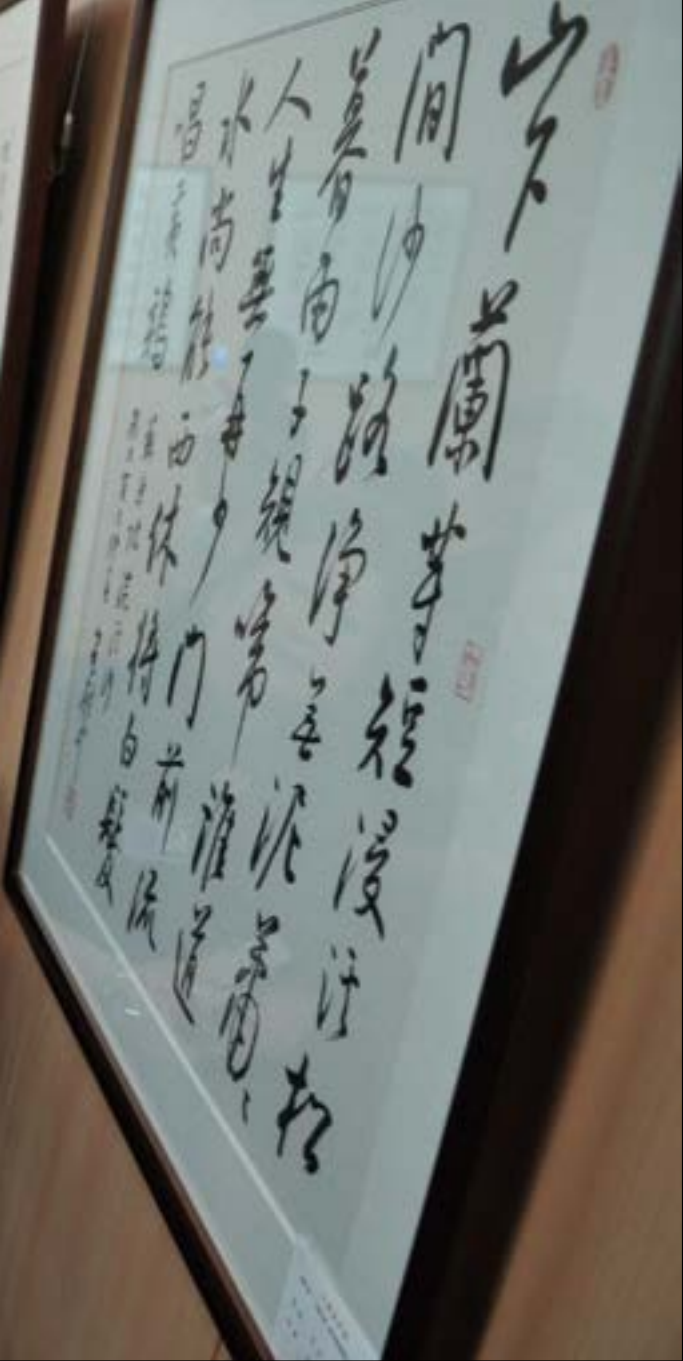 山下蘭芽短浸溪松
間沙路淨無泥蕭〻
暮雨子規啼誰道
人生無再少門前流
水尚能西休將白髮
唱黃雞